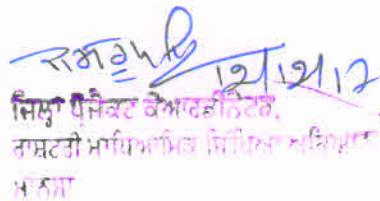 12/12/17
ਜਿਲ੍ਹਾ ਪ੍ਰੋਜੈਕਟ ਕੋਆਰਡੀਨੇਟਰ,
ਰਾਸ਼ਟਰੀ ਮਾਧਿਆਮਿਕ ਸਿੱਖਿਆ ਅਭਿਆਨ
ਮਾਨਸਾ